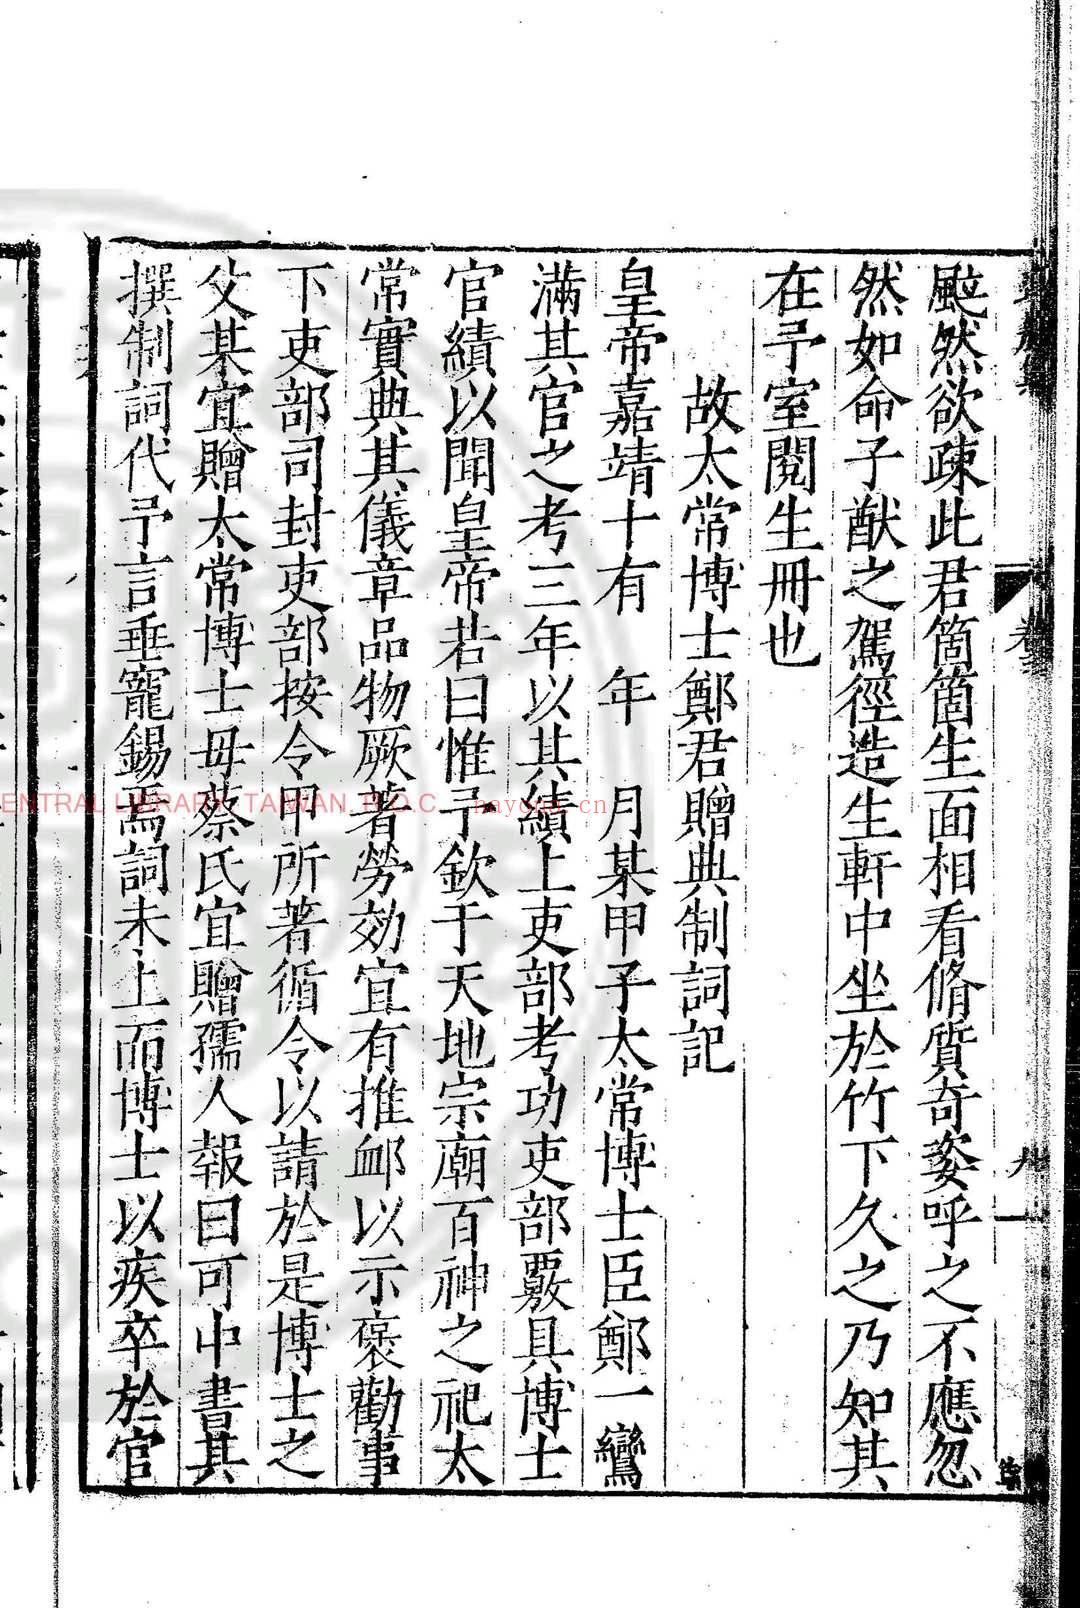 颼然欲疎此君箇箇生面相看脩質奇姿呼之不應忽
然如命子猷之駕徑造生軒中坐於竹下久之乃知其
在予室閱生冊也
故太常博士鄭君贈典制詞記
皇帝嘉靖十有　年　月某甲子太常博士臣鄭一鸞
滿其官之考三年以其績上吏部考功吏部覈具博士
官績以聞皇帝若曰惟予欽于天地宗廟百神之祀太
常實典其儀章品物厥著勞効宜有推卹以示褒勸事
下吏部司封吏部按令甲所著循令以請於是博士之
父某宜贈太常博士毋蔡氏宜贈孺人報曰可中書其
撰制詞代予言垂寵錫焉詞未上而博士以疾卒於官
卷
九
ENTRAL LIBRARY, TAIWAN, R.O.C.
nayona.cn